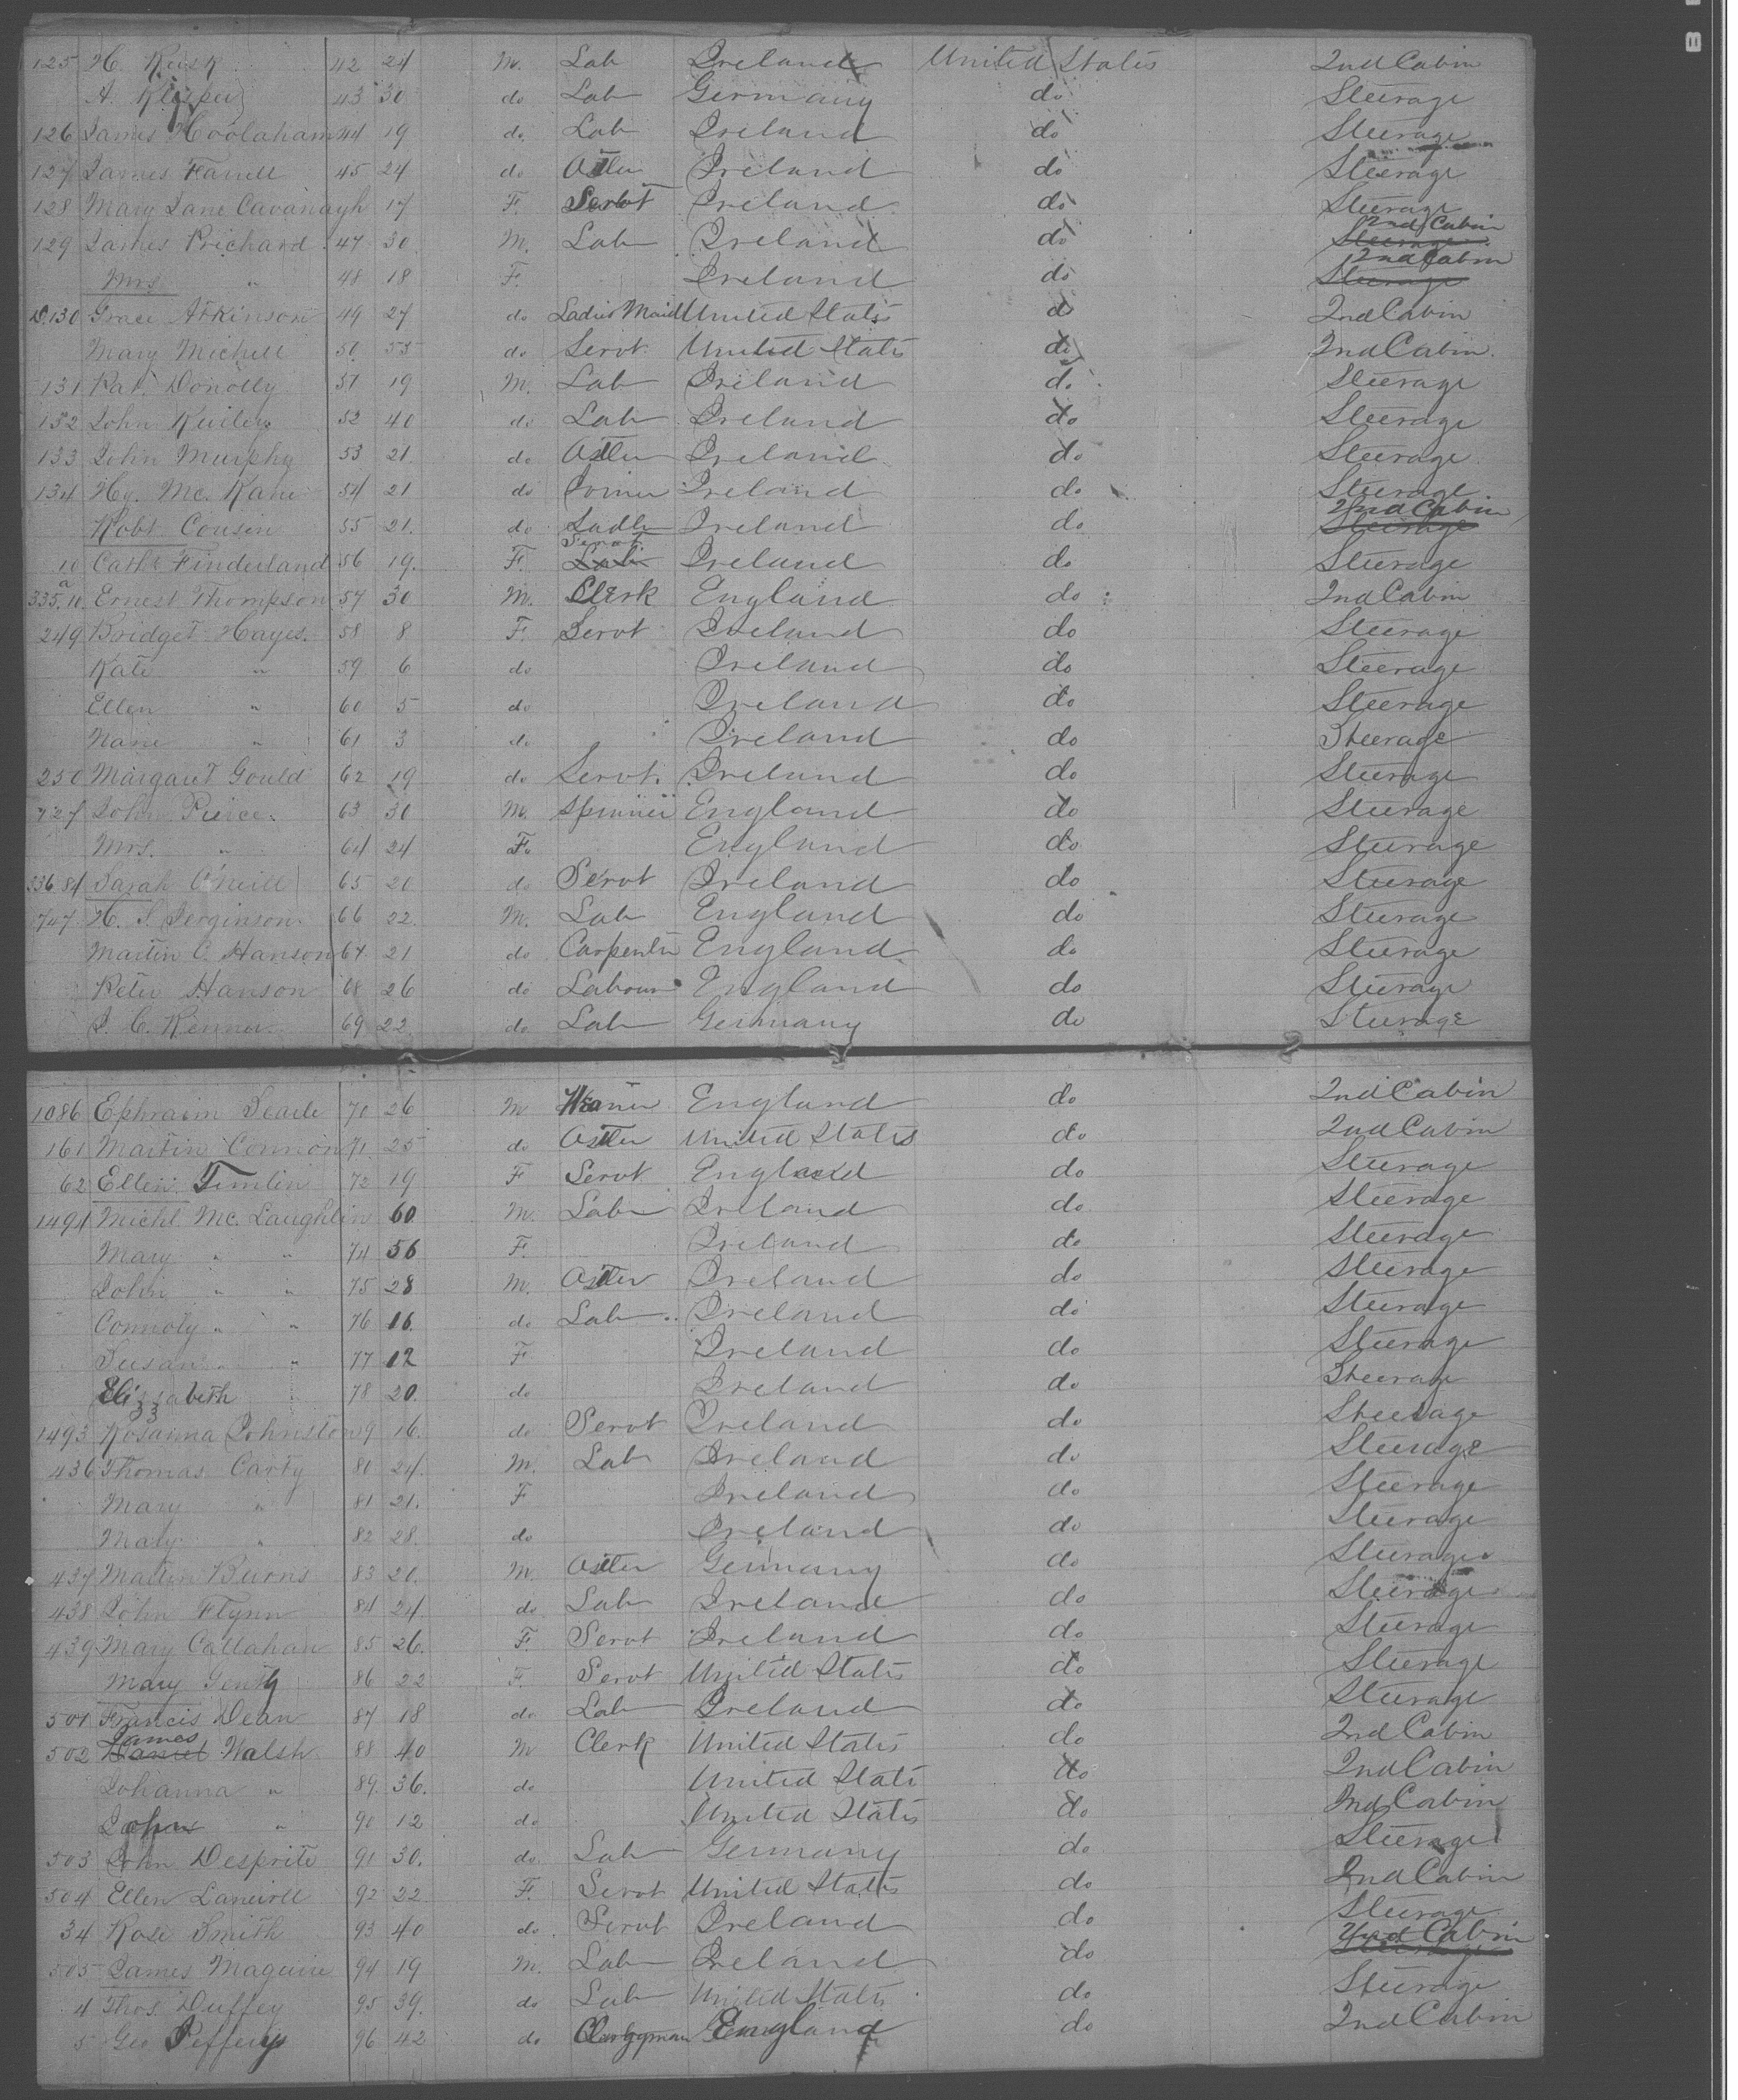 125 H. Rusk 42 24 M. Lab Ireland United States 2nd Cabin
A. 43 30 do Lab Germany do Steerage
126 James Hoolaham 44 19 do. Lab Ireland do Steerage
127 James Farrell 45 24 do Ostler Ireland do Steerage
128 Mary Jane Cavanagh 17 F. Servt Ireland do Steerage
129 James Prichard 47 30 M. Lab Ireland do Steerage 2nd Cabin
Mrs " 48 18 F. Ireland do Steerage 2nd Cabin
D.130 Grace Atkinson 49 27 do Ladies Maid United States do 2nd Cabin
Mary Michell 50 55 do Servt. United States do 2nd Cabin.
131 Pat. Donolly 51 19 M. Lab Ireland do. Steerage
132 John Reiley 52 40 do Lab Ireland do Steerage
133 John Murphy 53 21. do Ostler Ireland do Steerage
134 Hy. Mc. Kane 54 21 do Joiner Ireland do Steerage
Robt Cousin 55 21. do Sadler Ireland do Steerage 2nd Cabin
10 Cathe Finderland 56 19. F. Lab Servt. Ireland do Steerage
335.10 a Ernest Thompson 57 30 M. Clerk England do 2nd Cabin
249 Bridget Hayes. 58 8 F. Servt Ireland do Steerage
Kate " 59 6 do Ireland do Steerage
Ellen " 60 5 do Ireland do Steerage
Nane " 61 3 do Ireland do Steerage
250 Margaret Gould 62 19 do Servt. Ireland do Steerage
727 John Peirce. 63 30 M. Spinner England do Steerage
Mrs. " 64 24 F. England do Steerage
336 84 Sarah O'Neill 65 20 do Servt Ireland do Steerage
1747 H. S. Jerginson 66 22. M. Lab England do Steerage
Martin C. Hanson 67 21 do Carpenter England do Steerage
Peter Hanson 68 26 do Labour England do Steerage
J. C. Renner 69 22. do Lab Germany do Steerage
1086 Ephraim Searle 70 26 M England do 2nd Cabin
161 Martin Connon 71. 25 do Ostler United States do 2nd Cabin
62 Ellen Timlin 72 19 F Servt England do Steerage
1491 Michl Mc. Laughlin 60 M. Lab Ireland do Steerage
Mary " " 74 56 F. Ireland do Steerage
John " " 75 28 M. Ostler Ireland do Steerage
Connoly " " 76 16. do Lab Ireland do Steerage
Susan " " 77 12 F Ireland do Steerage
Elizzabeth " 78 20. do Ireland do Steerage
1493 Rosanna Johnston 79 16. do Servt Ireland do Steerage
436 Thomas Carty 80 24. M. Lab Ireland do Steerage
Mary " 81 21. F Ireland do Steerage
Mary " 82 28. do Ireland do Steerage
437 Martin Burns 83 20. M. Ostler Germany do Steerage
438 John Flynn 84 24 do Lab Ireland do Steerage
439 Mary Callahan 85 26. F. Servt Ireland do Steerage
Mary Genty 86 22 F. Servt United States do Steerage
501 Francis Dean 87 18 do Lab Ireland do Steerage
502 Daniel James Walsh 88 40 M Clerk United States do 2nd Cabin
Johanna " 89. 36. do United State do 2nd Cabin
John " 90 12 do United States do 2nd Cabin
503 John Desprite 91 30. do. Lab Germany do Steerage
504 Ellen 92 22 F. Servt United States do 2nd Cabin
34 Rose Smith 93 40 do. Servt Ireland do Steerage
505 James Maguire 94 19 M. Lab Ireland do Steerage 2nd Cabin
4 Thos. Duffey 95 39. do Lab United States do Steerage
5 Geo Jefferys 96 42 do Clergyman England do 2nd Cabin